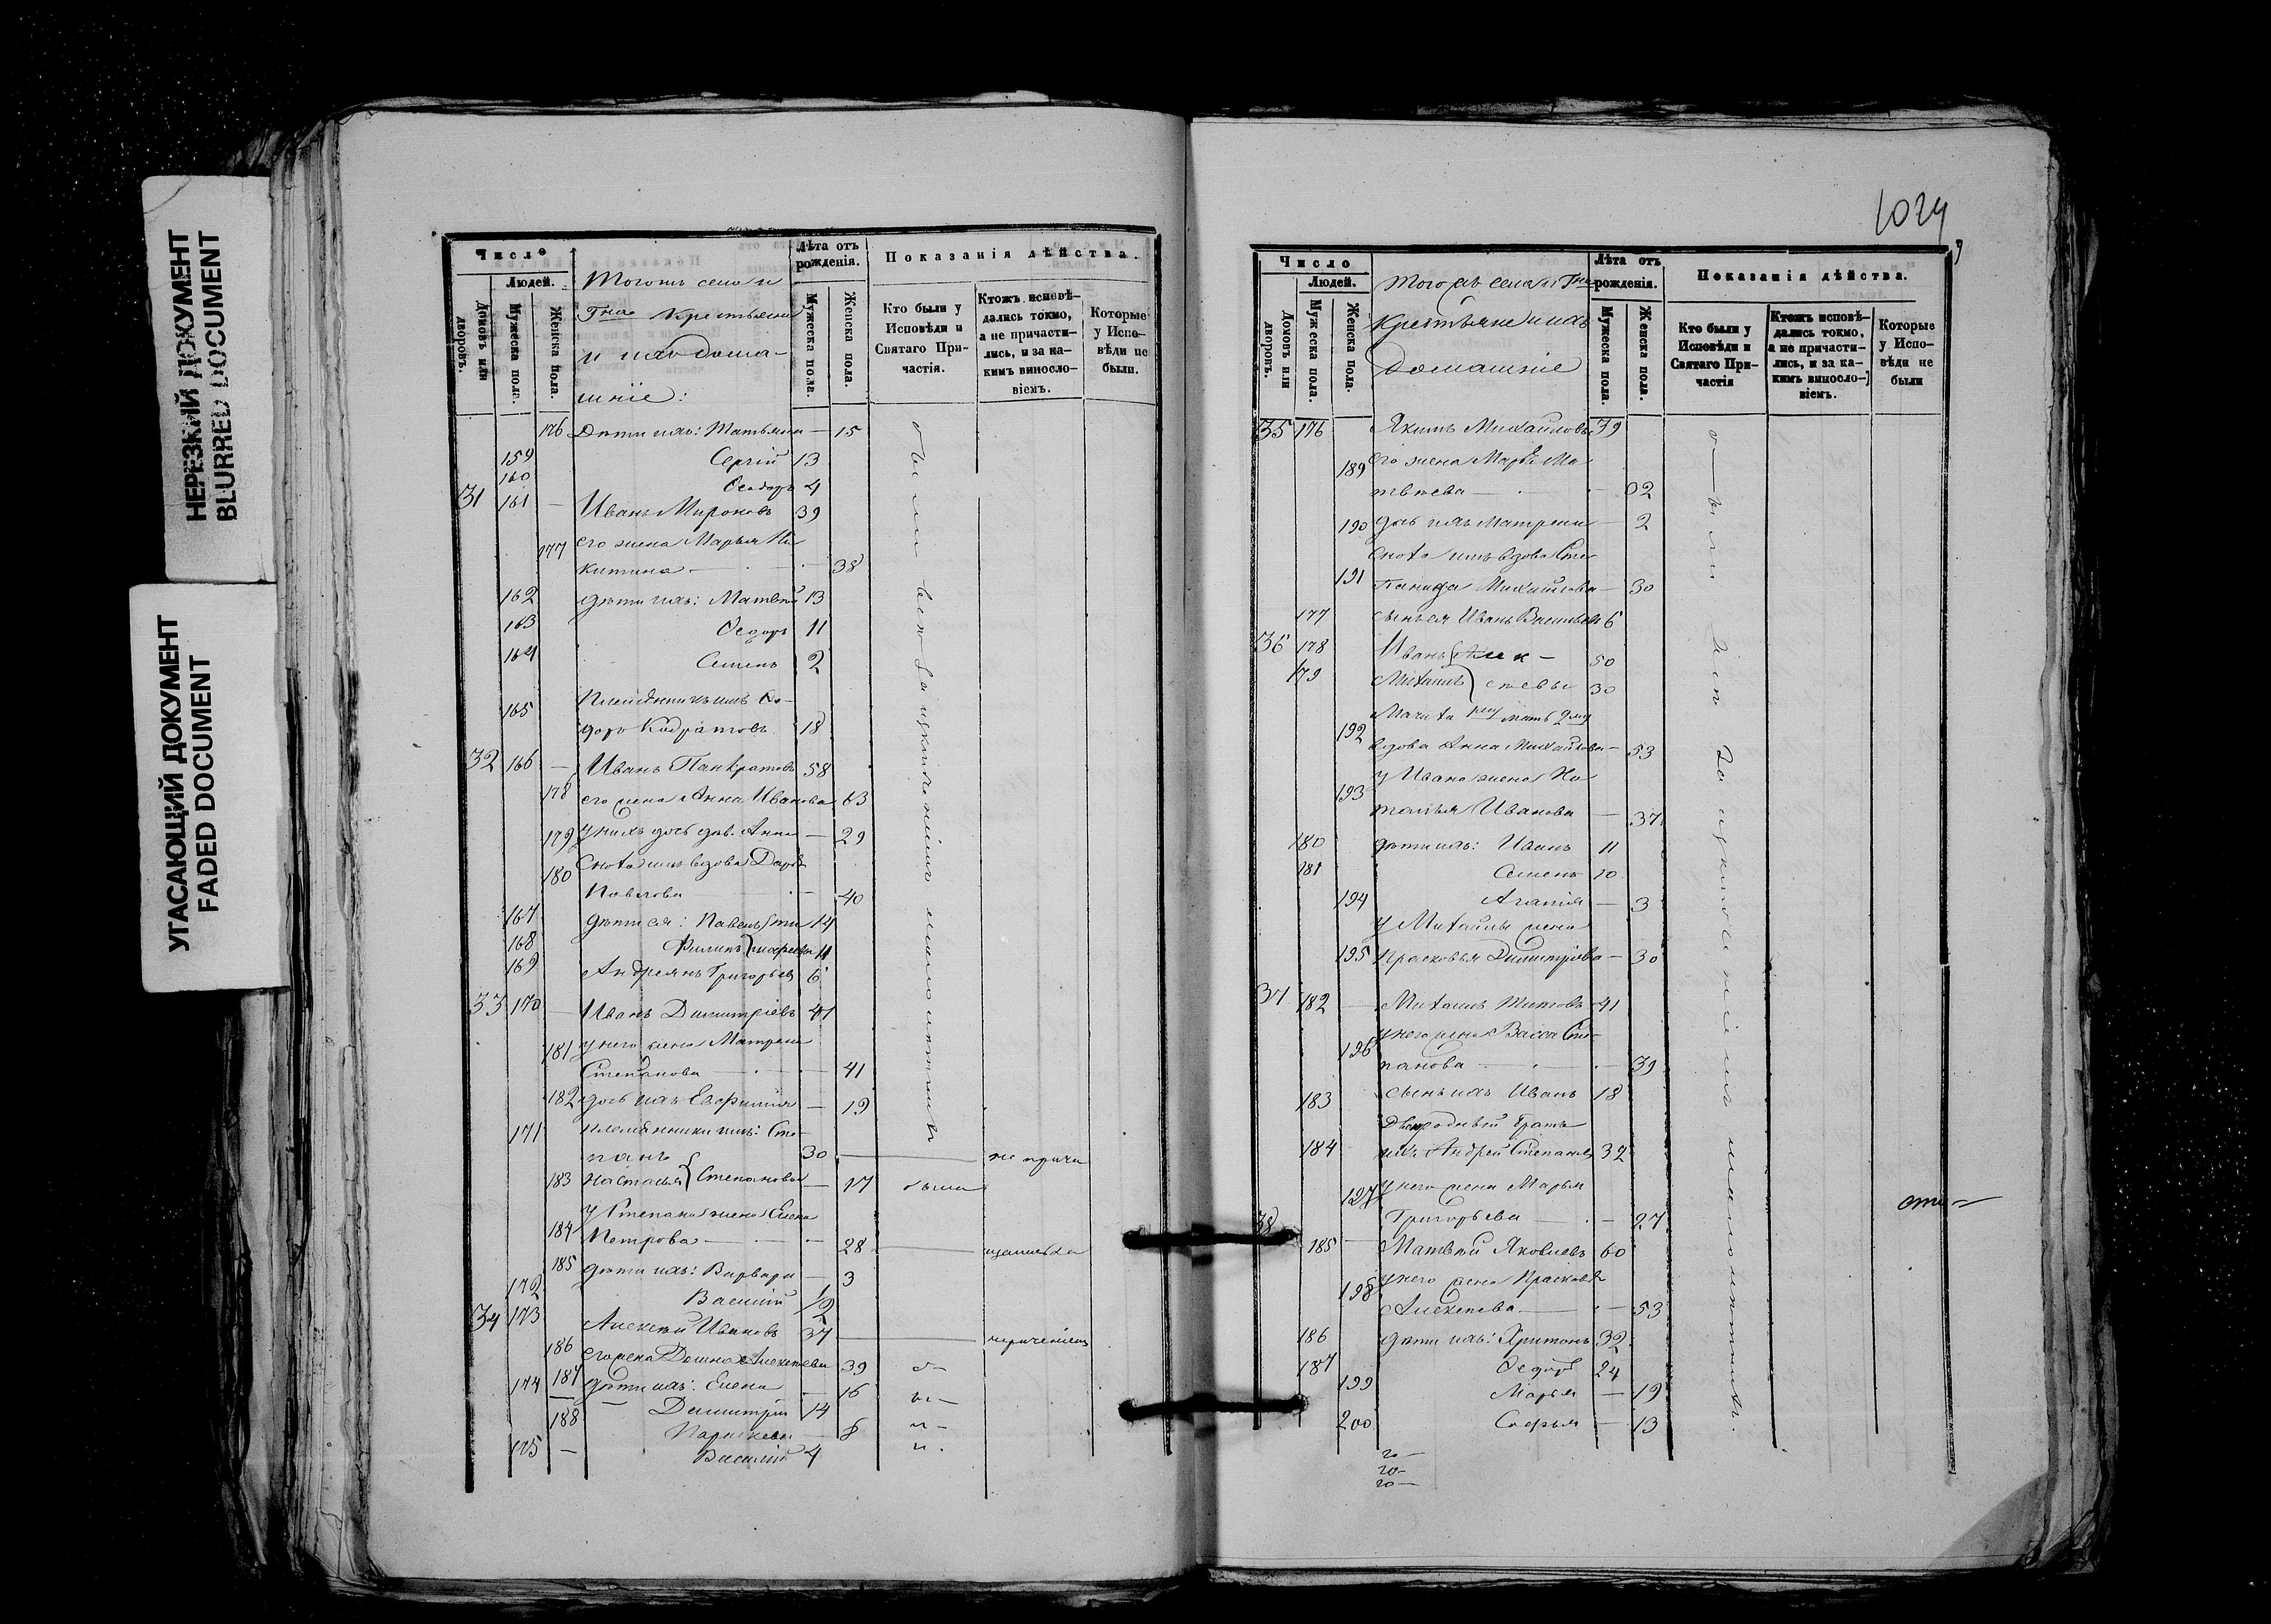 НЕРЕЗКИЙ ДОКУМЕНТ
BLURRED DOCUMENT
УГАСАЮЩИЙ ДОКУМЕНТ
FADED DOCUMENT
Число
Людей.
Домовъ или дворовъ.
Мужеска пола.
Женска пола.
Тогожъ села и
Гна Крестьяне
и ихъ дома-
шніе:
Лѣта отъ рожденія.
Мужеска пола.
Женска пола.
Показанія дѣйства.
Кто были у Исповѣди и Святаго При- частія.
Ктожъ исповѣ- дались токмо, а не причасти- лись, и за ка- кимъ виносло- віемъ.
Которые у Испо- вѣди не были.
176 Дѣти ихъ: Татьяна — 15
159 Сергій 13
160 Ѳеодоръ 4
31 161 — Иванъ Мироновъ 39
177 его жена Марья Ни-
китина — 38
162 дѣти ихъ: Матвей 13
163 Ѳедоръ 11
164 Семенъ 2
165 Племянникъ имъ Ѳе-
доръ 18
32 166 — Иванъ Панкратовъ 58
178 его жена Анна Иванова 63
179 у нихъ дочь дѣв. Анна — 29
180 Сноха имъ вдова Дарья
Павлова — 40
167 дѣти ея: Павелъ 14
168 Филипъ 11
169 Андреянъ Григорьевъ 6
33 170 — Иванъ Димитріевъ 41
181 у него жена Матрена
Степанова — 41
182 дочь ихъ Евфимія — 19
171 племянники имъ: Сте-
панъ 30 — не прича
183 Настасья Степановы — 17 была
у Степана жена Елена
184 Петрова — 28 —
185 дѣти ихъ: Варвара — 3
172 Василій 1/2
34 173 Алексѣй Ивановъ 37 —
186 его жена Домна Алексѣева 39 б—
174 187 дѣти ихъ: Елена — 16 ы—
Димитрій 14
188 Параскева — 8
175 — Василій 4
были всѣ за исключеніемъ малолѣтнихъ
1024
Число
Людей.
Домовъ или дворовъ.
Мужеска пола.
Женска пола.
Тогожъ села и Гна
Крестьяне и ихъ
домашніе
Лѣта отъ рожденія.
Мужеска пола.
Женска пола.
Показанія дѣйства.
Кто были у Исповѣди и Святаго При- частія
Ктожъ исповѣ- дались токмо, а не причасти- лись, и за ка- кимъ виносло- віемъ.
Которые у Испо- вѣди не были
35 176 Якимъ Михайловъ 39
189 его жена Марья Ма-
твѣева — 02
190 дочь ихъ Матрена — 2
Сноха имъ вдова Сте-
191 панида Михайлова — 30
177 сынъ ея Иванъ Васильевъ 6
36 178 Иванъ Алек- 50
179 Михаилъ сѣевы 30
Мачиха 1му мать 2му
192 вдова Анна Михайлова — 53
у Ивана жена На-
193 талья Иванова — 37
180 дѣти ихъ: Иванъ 11
181 Семенъ 10
194 Агапія — 3
у Михайлы жена
195 Прасковья Димитріева — 30
37 182 — Михаилъ Титовъ 41
196 у него жена Васса Сте-
панова — 39
183 сынъ ихъ Иванъ 18
Двоюродный братъ
184 ихъ Андрей Степановъ 32
197 у него жена Марья
Григорьева — 27
38 185 — Матвѣй Яковлевъ 60
198 у него жена Прасковья
Алексѣева — 53
186 дѣти ихъ: Харитонъ 32
187 Ѳедоръ 24
199 Марья — 19
200 Софья — 13
были всѣ за исключеніемъ малолѣтнихъ.